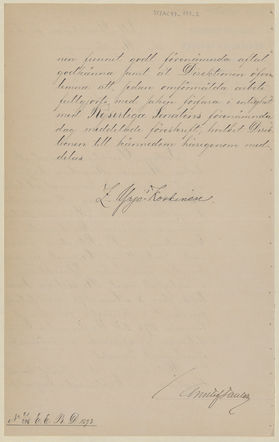 nen funnit godt förenämnda aftal
godkänna samt åt Direktionen öfver-
lemna att, sedan omförmälda arbete
fullgjorts, med saken förfara i enlighet
med Kejserliga Senatens förenämnda
dag meddelade föreskrift, hvilket Direk-
tionen till kännedom härigenom med-
delas.
Z. Yrjö-Koskinen.
E. E. B. D. 1893